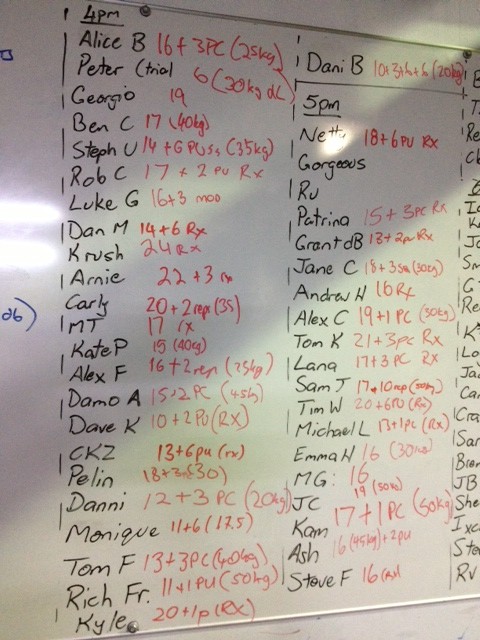 4pm
Alice B 16+3PC (25kg)
Peter (trial 6 (30kg dL)
Georgio 19
Ben C 17 (40kg)
Steph U 14+6 PUs, (35kg)
Rob C 17+2 PU Rx
Luke G 16+3 mod
Dan M 14+6 Rx
Krush 24 Rx
Arnie 22+3 rx
Carly 20+2 reps (35)
MT 17 rx
Kate P 15 (40kg)
Alex F 16+2reps (25kg)
Damo A 15+2PC (45kg)
Dave K 10+2PU (RX)
CKZ 13+6pu (rx)
Pelin 18+3 (30)
Danni 12+3 PC (20kg)
Monique 11+6 (17.5)
Tom F 13+3PC (40kg)
Rich Fr. 11+1PU (50kg)
Kyle 20+1p (RX)
Dani B (20kg)
5pm
Netty 18+6 PU Rx
Gorgeous
Ru
Patrina 15+3PC Rx
Grant dB 13+2pu Rx
Jane C 18+3 (30kg)
Andrew H 16 Rx
Alex C 19+1PC (30kg)
Tom K 21+3pc Rx
Lana 17+3 PC Rx
Sam J 17+10rep
Tim W 20+6PU (Rx)
Michael L 13+1pc (Rx)
Emma H 16 (30kg)
MG: 16
JC 19 (50kg)
Kam 17+1PC (50kg)
Ash 16 (45kg)+2pu
Steve F 16 (Rx)